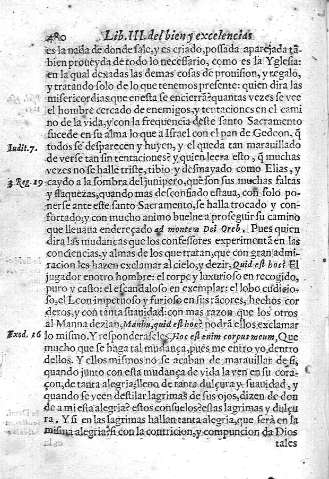 480 Lib. III. del bien, y excelencias
es la nada de donde sale, y es criado, possada aparejada tã-
bien proueyda de todo lo necessario, como es la Yglesia:
en la qual dexadas las demas cosas de prouision, y regalo,
y tratando solo de lo que tenemos presente: quien dira las
misericordias que en esta se encierrã? quantas vezes se vee
el hombre cercado de enemigos, y tentaciones en el cami
no de la vida, y con la frequencia deste santo Sacramento
sucede en su alma lo que a Israel con el pan de Gedeon, q̃
Iudit. 7.
todos se desparecen y huyen, y el queda tan marauillado
de verse tan sin tentaciones? y quien leera esto, q̃ muchas
vezes no se halle triste, tibio y desmayado como Elias, y
3. Reg. 19
caydo a la sombra del junipero, que son sus muchas faltas
y flaquezas, quando mas desconfiado estaua, con solo po-
nerse ante este santo Sacramento, se halla trocado y con-
fortado, y con mucho animo buelue a proseguir su camino
que lleuaua endereçado ad montem Dei Oreb. Pues quien
dira las mudanças que los confessores experimentã en las
conciencias, y almas de los que tratan, que con gran admi-
racion les hazen exclamar al cielo, y dezir, Quid est hoc? El
jugador en otro hombre: el torpe y luxurioso en recogido,
puro y casto: el escandaloso en exemplar: el lobo codicio-
so, el Leon impetuoso y furioso en sus rãcores, hechos cor
deros, y con tanta suauidad: con mas razon que los otros
al Manna dezian, Manhu, quid est hoc? podrã ellos exclamar
Exod. 16
lo mismo. Y responderseles, Hoc est enim corpus meum, Que
mucho que se haga tal mudança, pues me entro yo dentro
dellos. Y ellos mismos no se acaban de marauillar de si,
quando junto con esta mudança de vida la ven en su cora-
çon, de tanta alegria: lleno de tanta dulçura y suauidad, y
quando se veen destilar lagrimas de sus ojos, dizen de don
de a mi esta alegria? estos consuelos? estas lagrimas y dulçu
ra. Y si en las lagrimas hallan tanta alegria, que serà en la
misma alegria? si con la contricion, y compuncion da Dios
tales